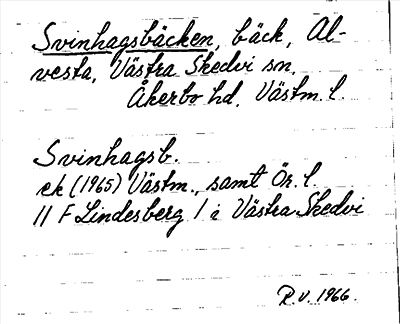 Svinhagsbäcken, bäck, Al-
vesta, Västra Skedvi sn,
Åkerbo hd, Västm. l.
Svinhagsb.
ek (1965) Västm., samt Ör. l.
11 F Lindesberg / i Västra Skedvi
R.V. 1966.